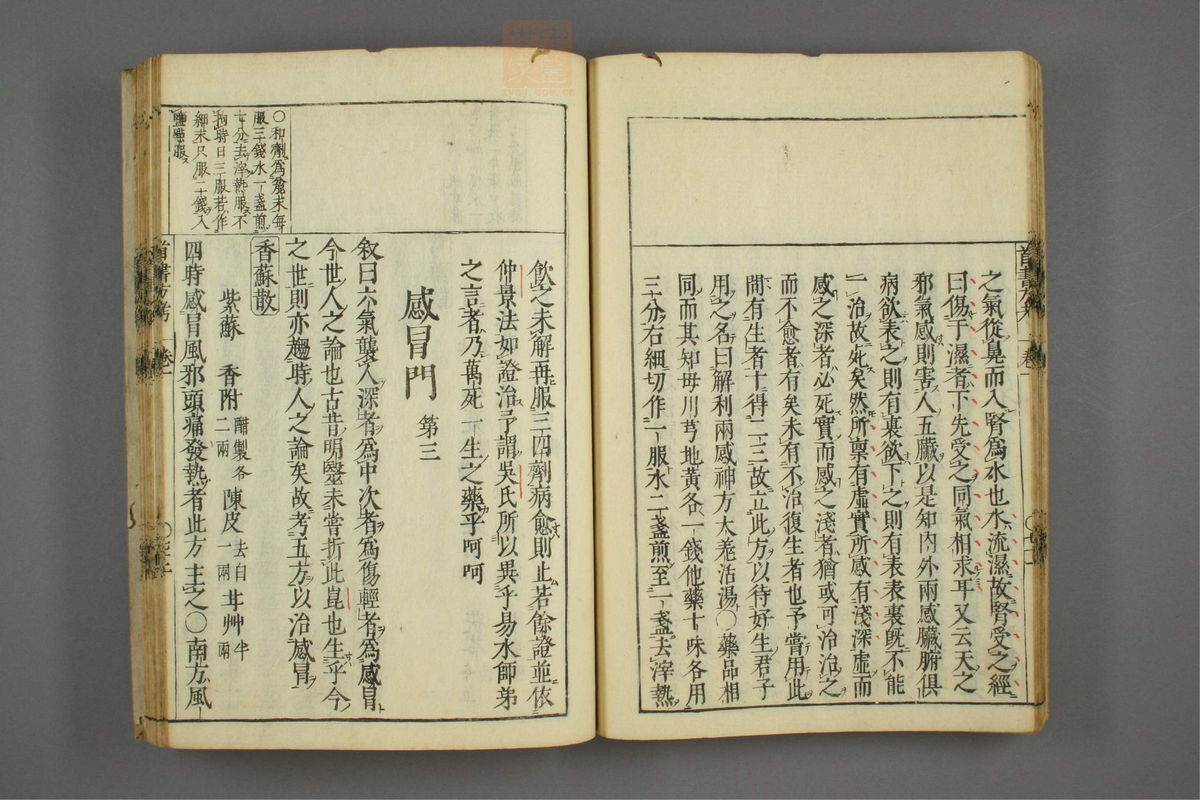 之氣從鼻而入腎爲水也水流濕故腎受之經
曰傷于濕者下先受之同氣相求耳又云天之
邪氣感則害人五臟以是知內外兩感臟腑俱
病欲表之則有裏欲下之則有表表裏既不能
一治故死矣然所禀有虛實所感有淺深虛而
感之深者必死實而感之淺者猶或可治治之
而不愈者有矣未有不治復生者也予嘗用此
間有生者十得二三故立此方以待好生君子
用之名曰解利兩感神方大羌活湯○藥品相
同而其知母川芎地黃各一錢他藥十味各用
三分右細切作一服水二盞煎至一盞去滓熱
飲之未解再服三四劑病愈則止若餘證並依
仲景法如證治予謂吳氏所以異乎易水師弟
之言者乃萬死一生之藥乎呵呵
感冒門 第三
叙曰六氣襲人深者爲中次者爲傷輕者爲感冒
今世人之論也古昔明醫未嘗折此崑也生乎今
之世則亦趨時人之論矣故考五方以治感冒
香蘇散
紫蘇 香附 醋製各二兩 陳皮 去白一兩 甘艸 半兩
四時感冒風邪頭痛發熱者此方主之○南方風
○和劑爲麄末每
服三錢水一盞煎
七分去滓熱服不
拘時日三服若作
細末只服二錢入
鹽點服
首書方考 卷一